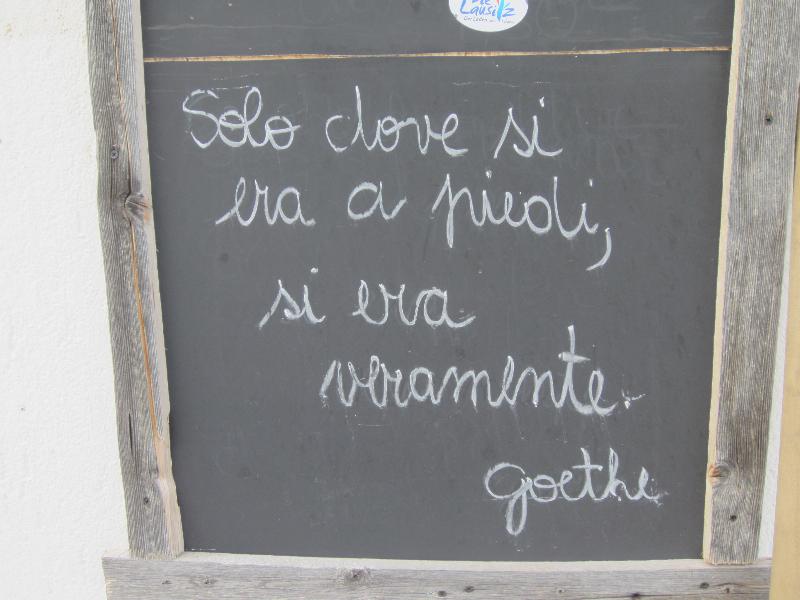 Lausitz
Solo dove si
era a piedi,
si era
veramente.
Goethe